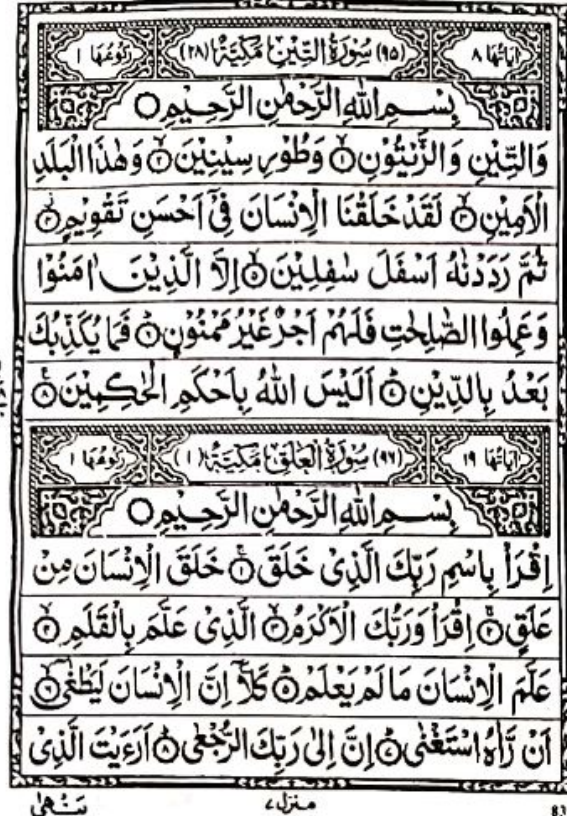 اٰيَاتُهَا ٨ (٩٥) سُوْرَةُ التِّيْنِ مَكِّيَّةٌ (٢٨) رُكُوْعُهَا ١
بِسْمِ اللّٰهِ الرَّحْمٰنِ الرَّحِيْمِ ○
وَالتِّيْنِ وَالزَّيْتُوْنِ ۙ‏﴿١﴾ وَطُوْرِ سِيْنِيْنَ ۙ‏﴿٢﴾ وَهٰذَا الْبَلَدِ
الْاَمِيْنِ ۙ‏﴿٣﴾ لَقَدْ خَلَقْنَا الْاِنْسَانَ فِيْۤ اَحْسَنِ تَقْوِيْمٍ ۫‏﴿٤﴾
ثُمَّ رَدَدْنٰهُ اَسْفَلَ سٰفِلِيْنَ ۙ‏﴿٥﴾ اِلَّا الَّذِيْنَ اٰمَنُوْا
وَعَمِلُوا الصّٰلِحٰتِ فَلَهُمْ اَجْرٌ غَيْرُ مَمْنُوْنٍ ؕ‏﴿٦﴾ فَمَا يُكَذِّبُكَ
بَعْدُ بِالدِّيْنِ ؕ‏﴿٧﴾ اَلَيْسَ اللّٰهُ بِاَحْكَمِ الْحٰكِمِيْنَ ‏﴿٨﴾
اٰيَاتُهَا ١٩ (٩٦) سُوْرَةُ الْعَلَقِ مَكِّيَّةٌ (١) رُكُوْعُهَا ١
بِسْمِ اللّٰهِ الرَّحْمٰنِ الرَّحِيْمِ ○
اِقْرَاْ بِاسْمِ رَبِّكَ الَّذِيْ خَلَقَ ۚ‏﴿١﴾ خَلَقَ الْاِنْسَانَ مِنْ
عَلَقٍ ۚ‏﴿٢﴾ اِقْرَاْ وَرَبُّكَ الْاَكْرَمُ ۙ‏﴿٣﴾ الَّذِيْ عَلَّمَ بِالْقَلَمِ ۙ‏﴿٤﴾
عَلَّمَ الْاِنْسَانَ مَا لَمْ يَعْلَمْ ؕ‏﴿٥﴾ كَلَّاۤ اِنَّ الْاِنْسَانَ لَيَطْغٰۤى ۙ‏﴿٦﴾
اَنْ رَّاٰهُ اسْتَغْنٰى ؕ‏﴿٧﴾ اِنَّ اِلٰى رَبِّكَ الرُّجْعٰى ؕ‏﴿٨﴾ اَرَءَيْتَ الَّذِيْ
يَنْهٰى
منزل ٧
83